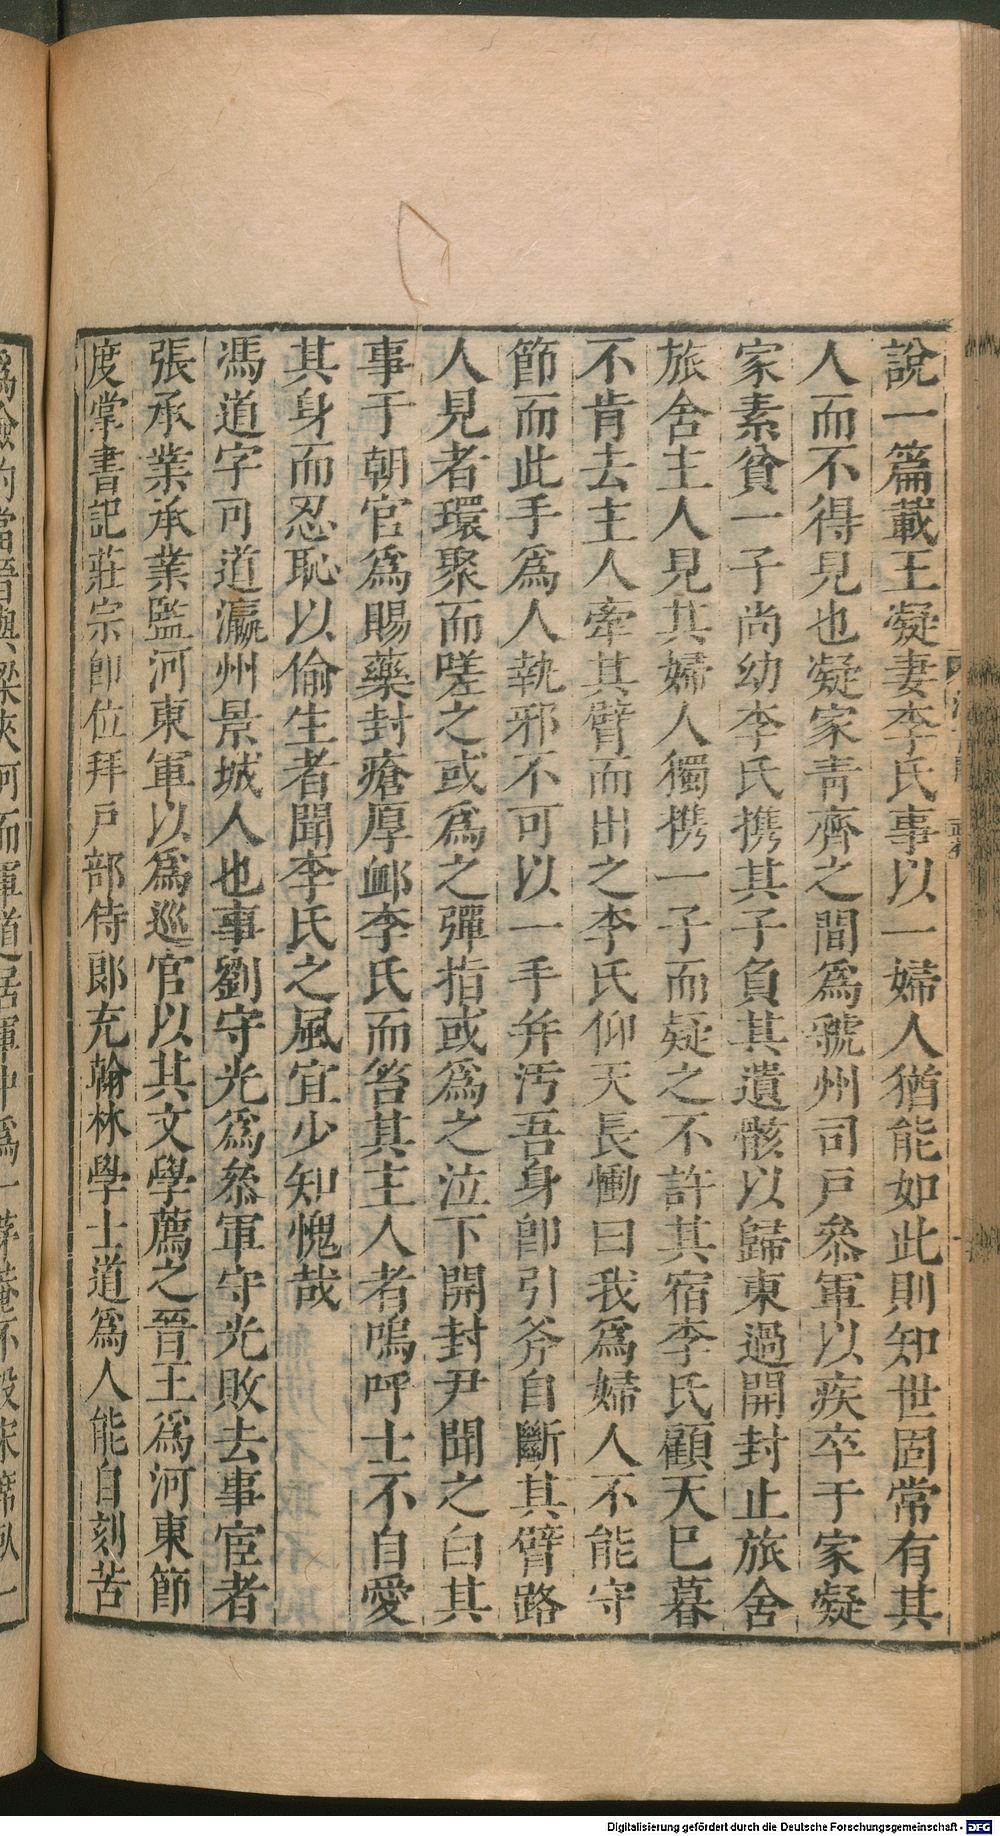 說一篇載王凝妻李氏事以一婦人猶能如此則知世固常有其
人而不得見也凝家青齊之間爲虢州司戶叅軍以疾卒于家凝
家素貧一子尚幼李氏携其子負其遺骸以歸東過開封止旅舍
旅舍主人見其婦人獨携一子而疑之不許其宿李氏顧天巳暮
不肯去主人牽其臂而出之李氏仰天長慟曰我爲婦人不能守
節而此手爲人執邪不可以一手并汚吾身卽引斧自斷其臂路
人見者環聚而嗟之或爲之彈指或爲之泣下開封尹聞之白其
事于朝官爲賜藥封瘡厚衈李氏而笞其主人者嗚呼士不自愛
其身而忍恥以偷生者聞李氏之風宜少知愧哉
馮道字可道瀛州景城人也事劉守光爲叅軍守光敗去事宦者
張承業承業監河東軍以爲巡官以其文學薦之晉王爲河東節
度掌書記莊宗卽位拜戶部侍郎充翰林學士道爲人能自刻苦
爲儉約當晉與梁夾河而軍道居軍中爲一茅菴不設牀席臥一
Digitalisierung gefördert durch die Deutsche Forschungsgemeinschaft - DFG